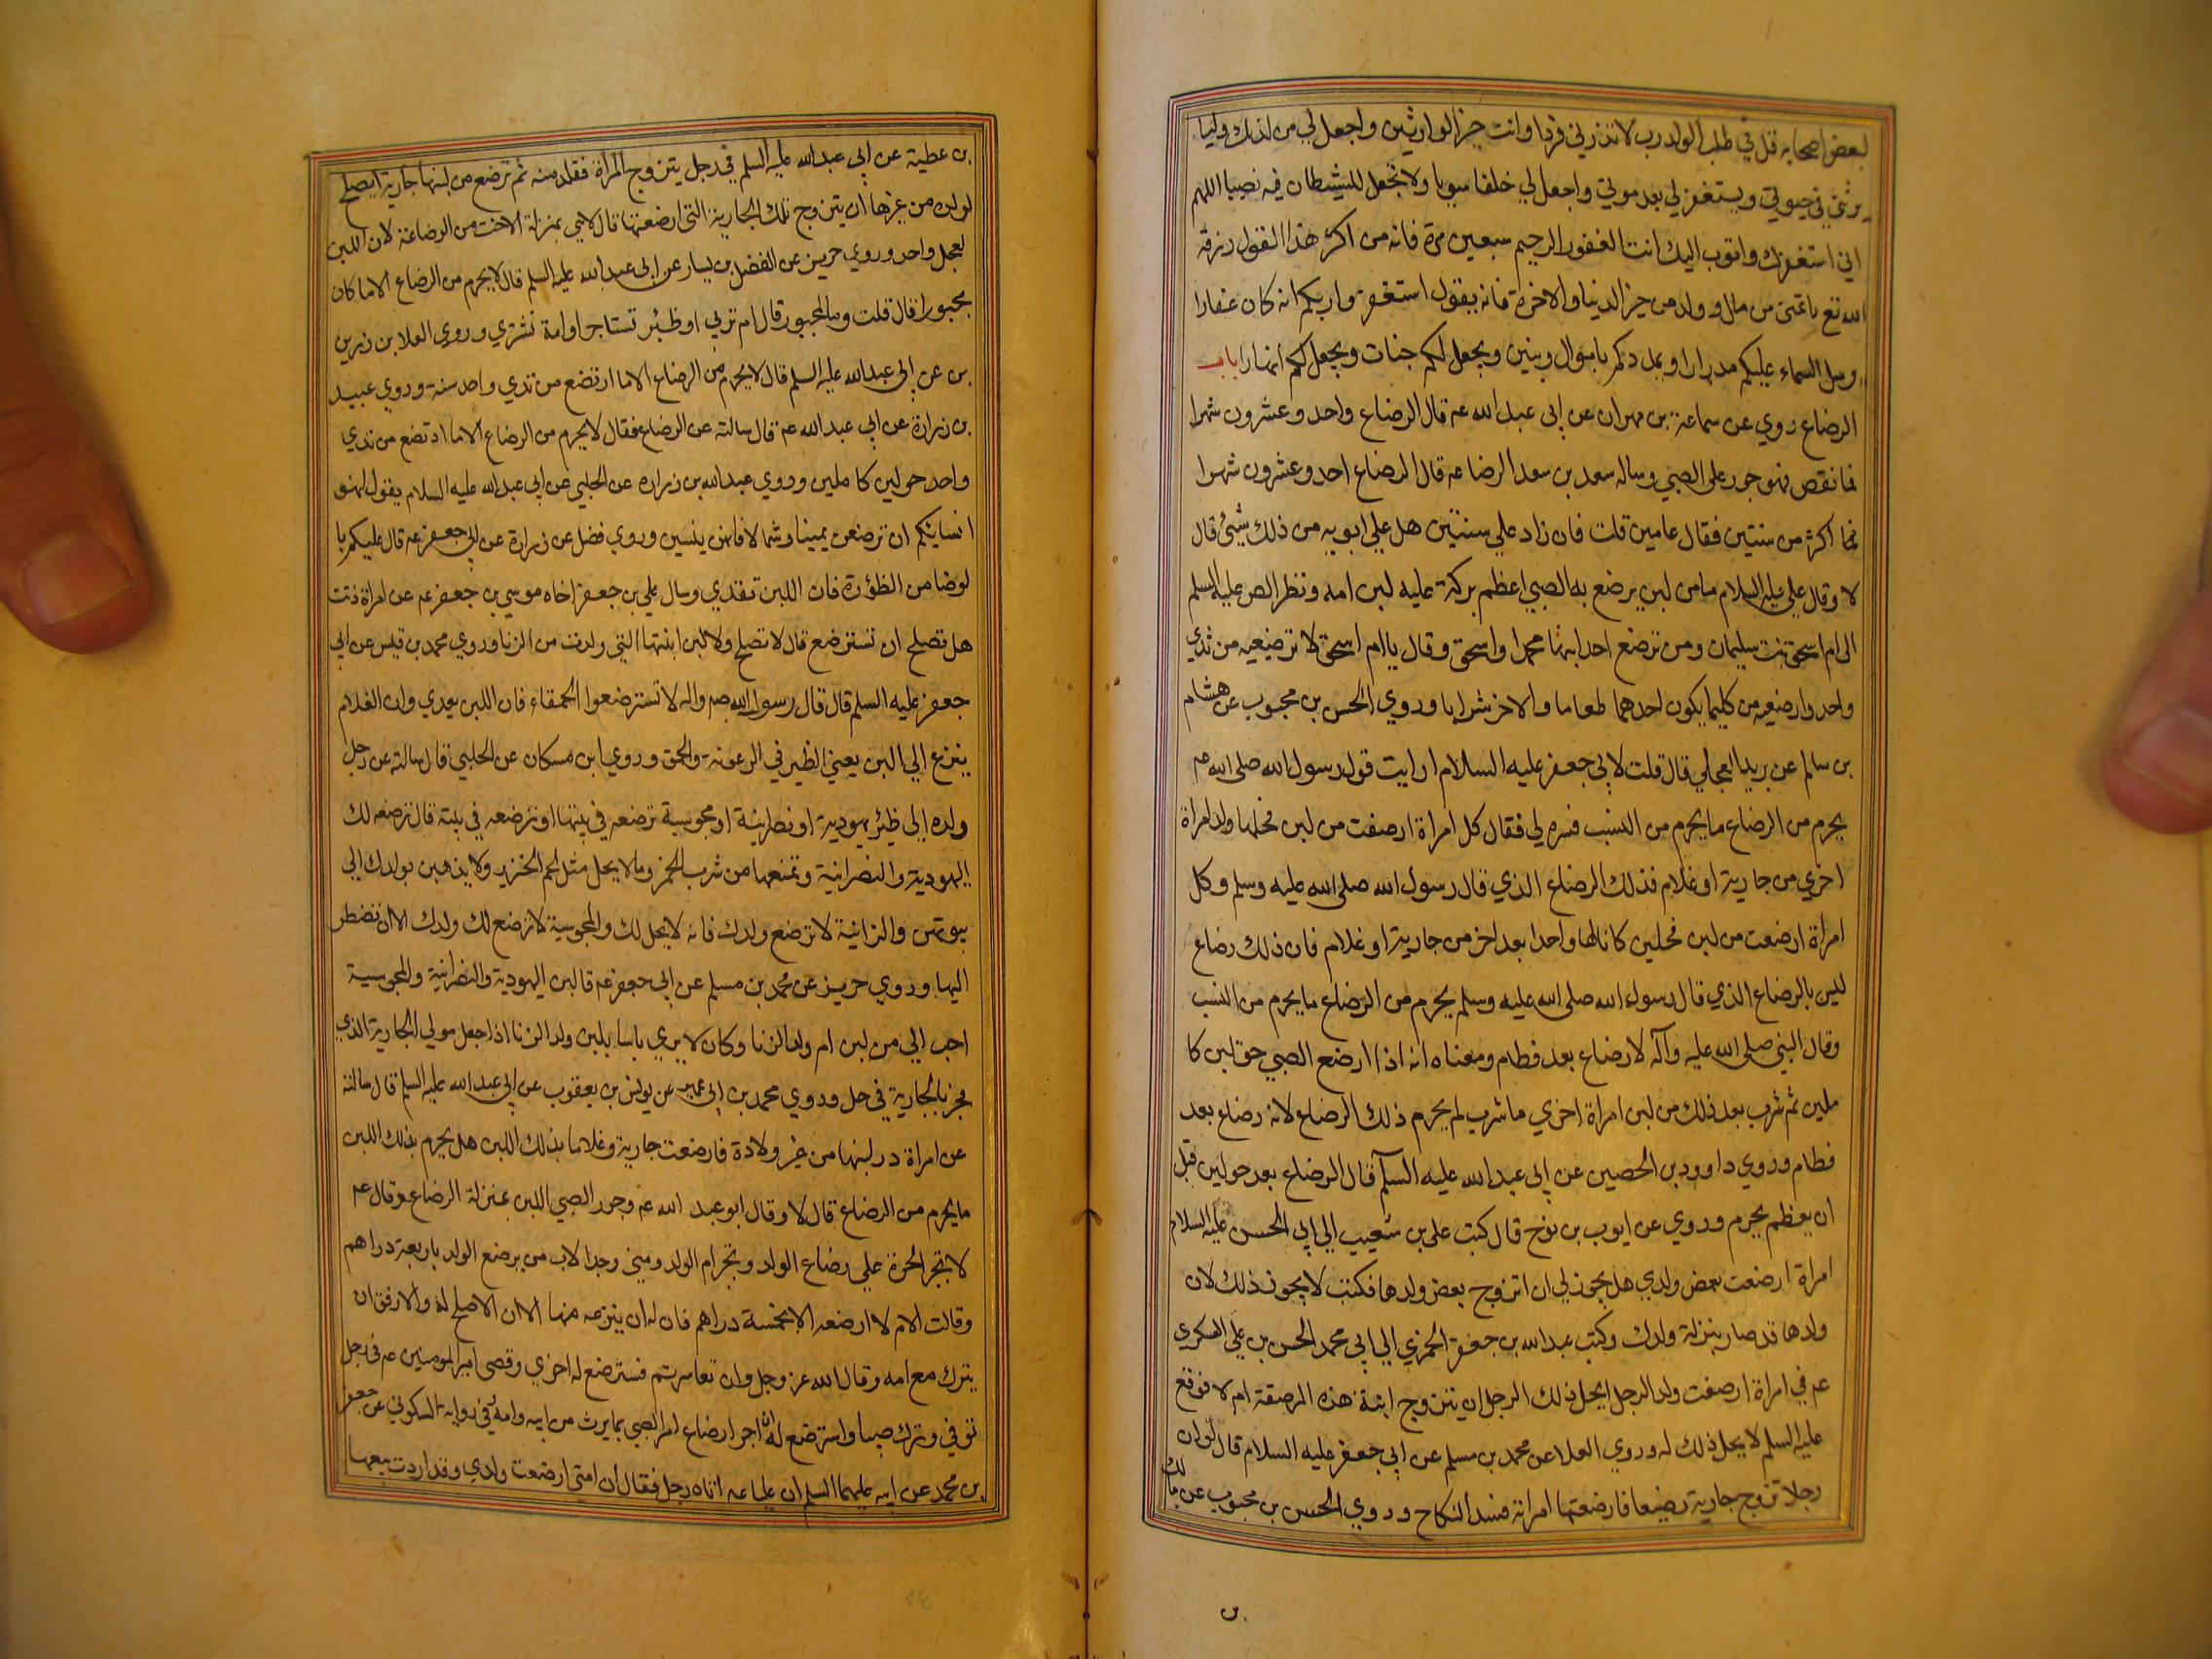 لبعض اصحابه قل في طلب الولد رب لا تذرني فردا وانت خير الوارثين واجعل لي من لدنك وليا
يرثني في حيوتي ويستغفر لي بعد موتي واجعل لي خلفا سويا ولا تجعل للشيطان فيه نصيبا اللهم
اني استغفرك واتوب اليك انت الغفور الرحيم سبعين مرة فانه من اكثر هذا القول رزقه
الله تع ما تمنى من مال وولد من خير الدنيا والاخرة فانه يقول استغفروا ربكم انه كان غفارا
يرسل السماء عليكم مدرارا ويمددكم باموال وبنين ويجعل لكم جنات ويجعل لكم انهارا باب
الرضاع روي عن سماعة بن مهران عن ابي عبد الله عم قال الرضاع واحد وعشرون شهرا
فما نقص فهو جور على الصبي وساله سعد بن سعد الرضا عم قال الرضاع احد وعشرون شهرا
فما اكثر من سنتين فقال عامين قلت فان زاد علي سنتين هل علي ابويه من ذلك شيئ قال
لا وقال علي عليه السلام ما من لبن يرضع به الصبي اعظم بركة عليه لبن امه ونظر الص عليه السلم
الى ام اسحق بنت سليمان ومن ترضع احد ابنها محمدا واسحق وقال يا ام اسحق لا ترضعيه من ثدي
واحد وارضعيه من كليهما يكون احدهما طعاما والاخر شرابا وروي الحسن بن محبوب عن هشام
بن سالم عن بريد العجلي قال قلت لابي جعفر عليه السلام ارايت قول رسول الله صلى الله عم
يحرم من الرضاع ما يحرم من النسب فسره لي فقال كل امراة ارضعت من لبن فحلها ولد امراة
اخري من جارية او غلام فذلك الرضاع الذي قال رسول الله صلى الله عليه وسلم وكل
امراة ارضعت من لبن فحلين كانا لها واحدا بعد اخر من جارية او غلام فان ذلك رضاع
ليس بالرضاع الذي قال رسول الله صلى الله عليه وسلم يحرم من الرضاع ما يحرم من النسب
وقال النبي صلى الله عليه وآله لا رضاع بعد فطام ومعناه انه اذا ارضع الصبي حق لبن كا
ملين ثم شرب بعد ذلك من لبن امراة اخري ما شرب لم يحرم ذلك الرضاع لانه رضاع بعد
فطام وروي داوود بن الحصين عن ابي عبد الله عليه السلم قال الرضاع بعد حولين قبل
ان يعظم يحرم وروي عن ايوب بن نوح قال كتب على بن شعيب الي ابي الحسن عليه السلام
امراة ارضعت بعض ولدي هل يجوز لي ان اتزوج بعض ولدها فكتب لا يجوز ذلك لان
ولدها قد صار بمنزلة ولدك وكتب عبد الله بن جعفر الحمزي الي ابي محمد الحسن بن علي العسكري
عم في امراة ارضعت ولد الرجل ايحل ذلك الرجل ان يتزوج ابنة هذه المرضعة ام لا فوقع
عليه السلم لا يحل ذلك له وروي العلا عن محمد بن مسلم عن ابي جعفر عليه السلام قال لو ان
رجلا تزوج جارية رضيعا فارضعتها امراته فسد النكاح وروي الحسن بن محبوب عن مالك
بن
بن عطية عن ابي عبد الله عليه السلم في رجل يتزوج المراة فتلد منه ثم ترضع من لبنها جارية ايصلح
لولده من غيرها ان يتزوج تلك الجارية التي ارضعتها قال لا هي بمنزلة الاخت من الرضاعة لان اللبن
لفحل واحد وروي حريز عن الفضل بن يسار عن ابي عبد الله عليه السلم قال لا يحرم من الرضاع الا ما كان
مجبورا قال قلت وما المجبور قال ام تربي او ظئر تستاجر او امة تشتري وروي العلا بن رزين
بن عن ابي عبد الله عليه السلم قال لا يحرم من الرضاع الا ما ارتضع من ثدي واحد سنة وروي عبيد
بن زرارة عن ابي عبد الله عم قال سالته عن الرضاع فقال لا يحرم من الرضاع الا ما ارتضع من ثدي
واحد حولين كاملين وروي عبد الله بن زراره عن الحلبي عن ابي عبد الله عليه السلام يقول انهو
انسايكم ان ترضعن يمينا وشمالا فانهن ينسين وروي فضل عن زرارة عن ابي جعفر عم قال عليكم با
لوضا من الظؤرة فان اللبن تعدي وسال علي بن جعفر اخاه موسي بن جعفر عم عن امراة زنت
هل تصلح ان تسترضع قال لا تصلح ولا لبن ابنتها التي ولدت من الزنا وروي محمد بن قيس عن ابي
جعفر عليه السلم قال قال رسول الله صم واله لا تسترضعوا الحمقاء فان اللبن يعدي وان الغلام
ينزع الي اللبن يعني الظير في الرعونة والحمق وروي ابن مسكان عن الحلبي قال سالته عن رجل
ولده الي ظئر يهودية او نصرانية او مجوسية ترضعه في بيتها او ترضعه في بيته قال ترضعه لك
اليهودية والنصرانية وتمنعها من شرب الخمر وما لا يحل مثل لحم الخنزير ولا يذهبن بولدك الي
بيوتهن والزانية لا ترضع ولدك فانه لا يحل لك والمجوسية لا ترضع لك ولدك الا ان تضطر
اليها وروي حريز عن محمد بن مسلم عن ابي جعفر عم قا لبن اليهودية والنصرانية والمجوسية
احب الي من لبن ام ولد الزنا وكان لا يري باسا بلبن ولد الزنا اذا جعل مولي الجارية الذي
فجر بالجارية في حل وروي محمد بن ابي عمير عن يونس بن يعقوب عن ابي عبد الله عليه السلم قال سالته
عن امراة در لبنها من غير ولادة فارضعت جارية وغلاما بذلك اللبن هل يحرم بذلك اللبن
ما يحرم من الرضاع قال لا وقال ابو عبد الله عم وجور الصبي اللبن بمنزلة الرضاع وقال عم
لا تجبر الحرة علي رضاع الولد وتجبر ام الولد ومتى وجد الاب من يرضع الولد باربعة دراهم
وقالت الام لا ارضعه الا بخمسة دراهم فان له ان ينزعه منها الا ان الاصلح له والارفق ان
يترك مع امه وقال الله عز وجل وان تعاسرتم فسترضع له اخري وقضى امير المومنين عم في رجل
توفي وترك صبيا واسترضع له ان اجر ارضاع الصبي مما يرث من ابيه وامه وفي رواية السكوني عن جعفر
بن محمد عن ابيه عليهما السلم ان عليا عم اتاه رجل فقال ان امتي ارضعت ولدي وقد اردت بيعها